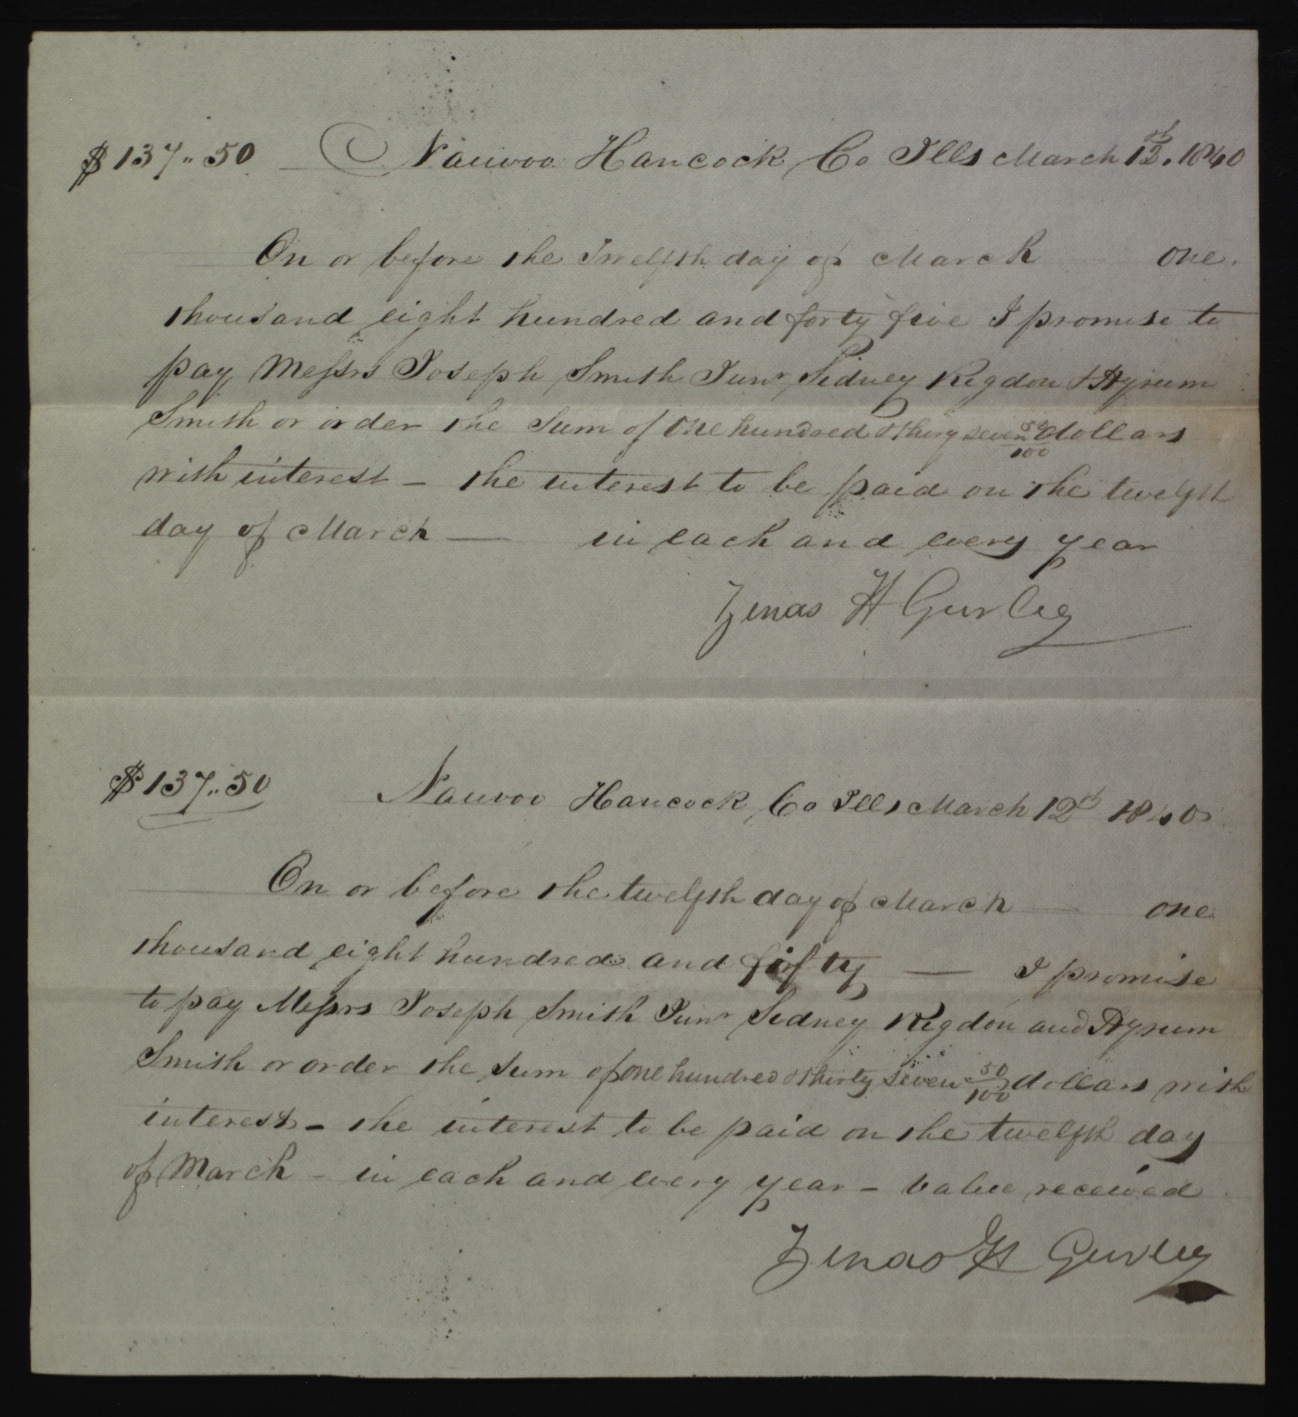 $137.. 50 Nauvoo Hancock Co Ills March 12th, 1840
On or before the Twelfth day of March one
thousand eight hundred and forty five I promise to
pay Messrs Joseph Smith Junr, Sidney Rigdon & Hyrum
Smith or order the Sum of One hundred & thirty seven 50/100 dollars
with interest – the interest to be paid on the twelfth
day of March — in each and every year
Zenas H Gurley
$137.. 50 Nauvoo Hancock Co Ills March 12th 1840
On or before the twelfth day of March — one
thousand eight hundred and fifty — I promise
to pay Messrs Joseph Smith Junr Sidney Rigdon and Hyrum
Smith or order the Sum of one hundred & thirty seven 50/100 dollars with
interest – the interest to be paid on the twelfth day
of March – in each and every year – value received
Zenas H Gurley